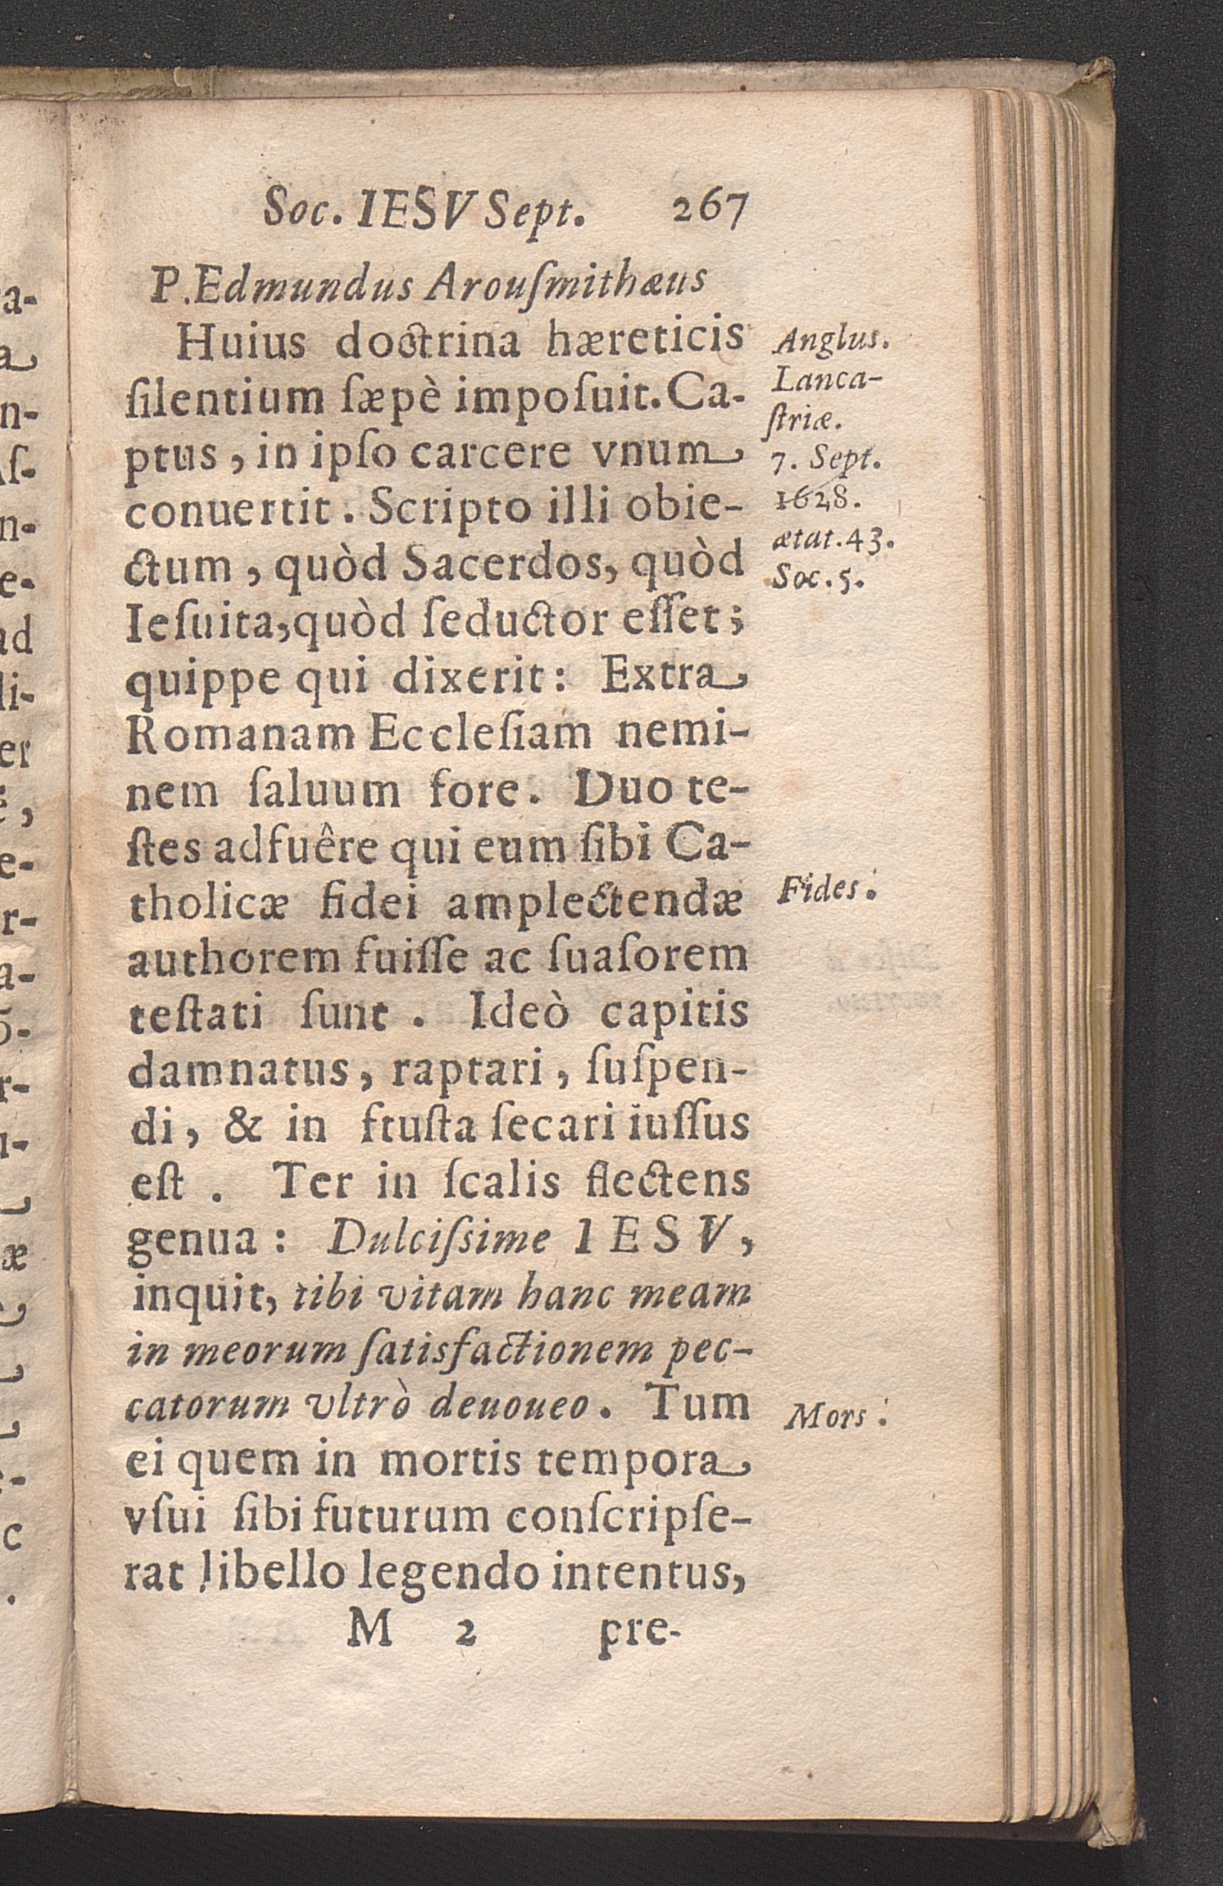 Soc. IESV Sept. 267
P. Edmundus Arouſmithæus
Huius doctrina hæreticis
ſilentium ſæpè impoſuit. Ca-
ptus, in ipſo carcere vnum
conuertit. Scripto illi obie-
ctum, quòd Sacerdos, quòd
Ieſuita, quòd ſeductor eſſet;
quippe qui dixerit: Extra
Romanam Eccleſiam nemi-
nem ſaluum fore. Duo te-
ſtes adfuêre qui eum ſibi Ca-
tholicæ fidei amplectendæ
authorem fuiſſe ac ſuaſorem
teſtati ſunt. Ideò capitis
damnatus, raptari, ſuſpen-
di, & in fruſta ſecari iuſſus
eſt. Ter in ſcalis flectens
genua: Dulciſsime IESV,
inquit, tibi vitam hanc meam
in meorum ſatisfactionem pec-
catorum vltrò deuoueo. Tum
ei quem in mortis tempora
vſui ſibi futurum conſcripſe-
rat libello legendo intentus,
M 2 pre-
Anglus.
Lanca-
ſtriæ.
7. Sept.
1628.
ætat. 43.
Soc. 5.
Fides.
Mors.